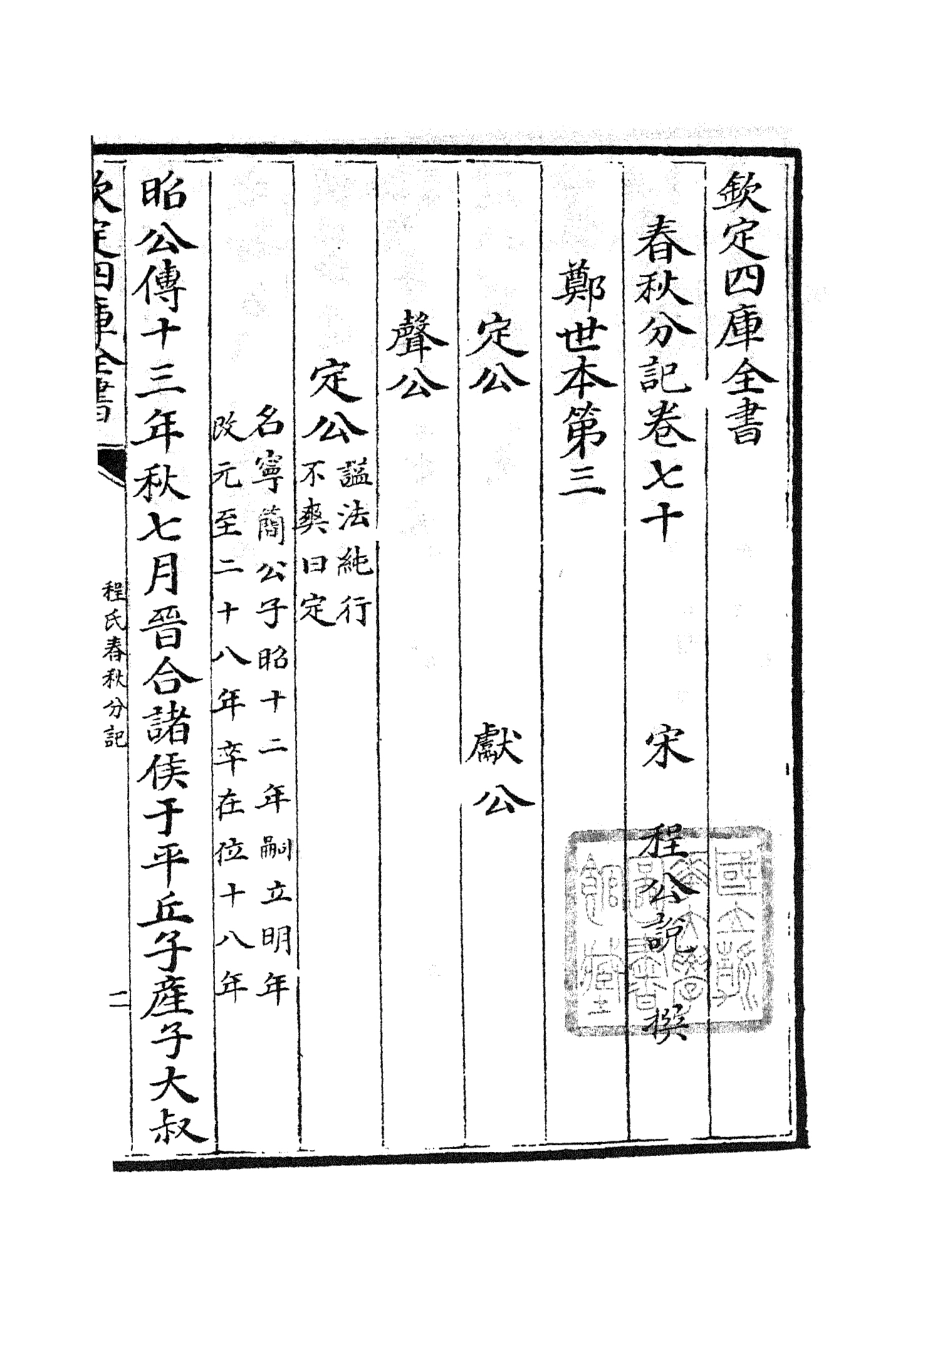 欽定四庫全書
春秋分記卷七十
宋 程公說 撰
鄭世本第三
定公 獻公
聲公
定公
諡法純行
不爽曰定
名寧簡公子昭十二年嗣立明年
改元至二十八年卒在位十八年
昭公傳十三年秋七月晉合諸侯于平丘子產子大叔
欽定四庫全書
程氏春秋分記
二